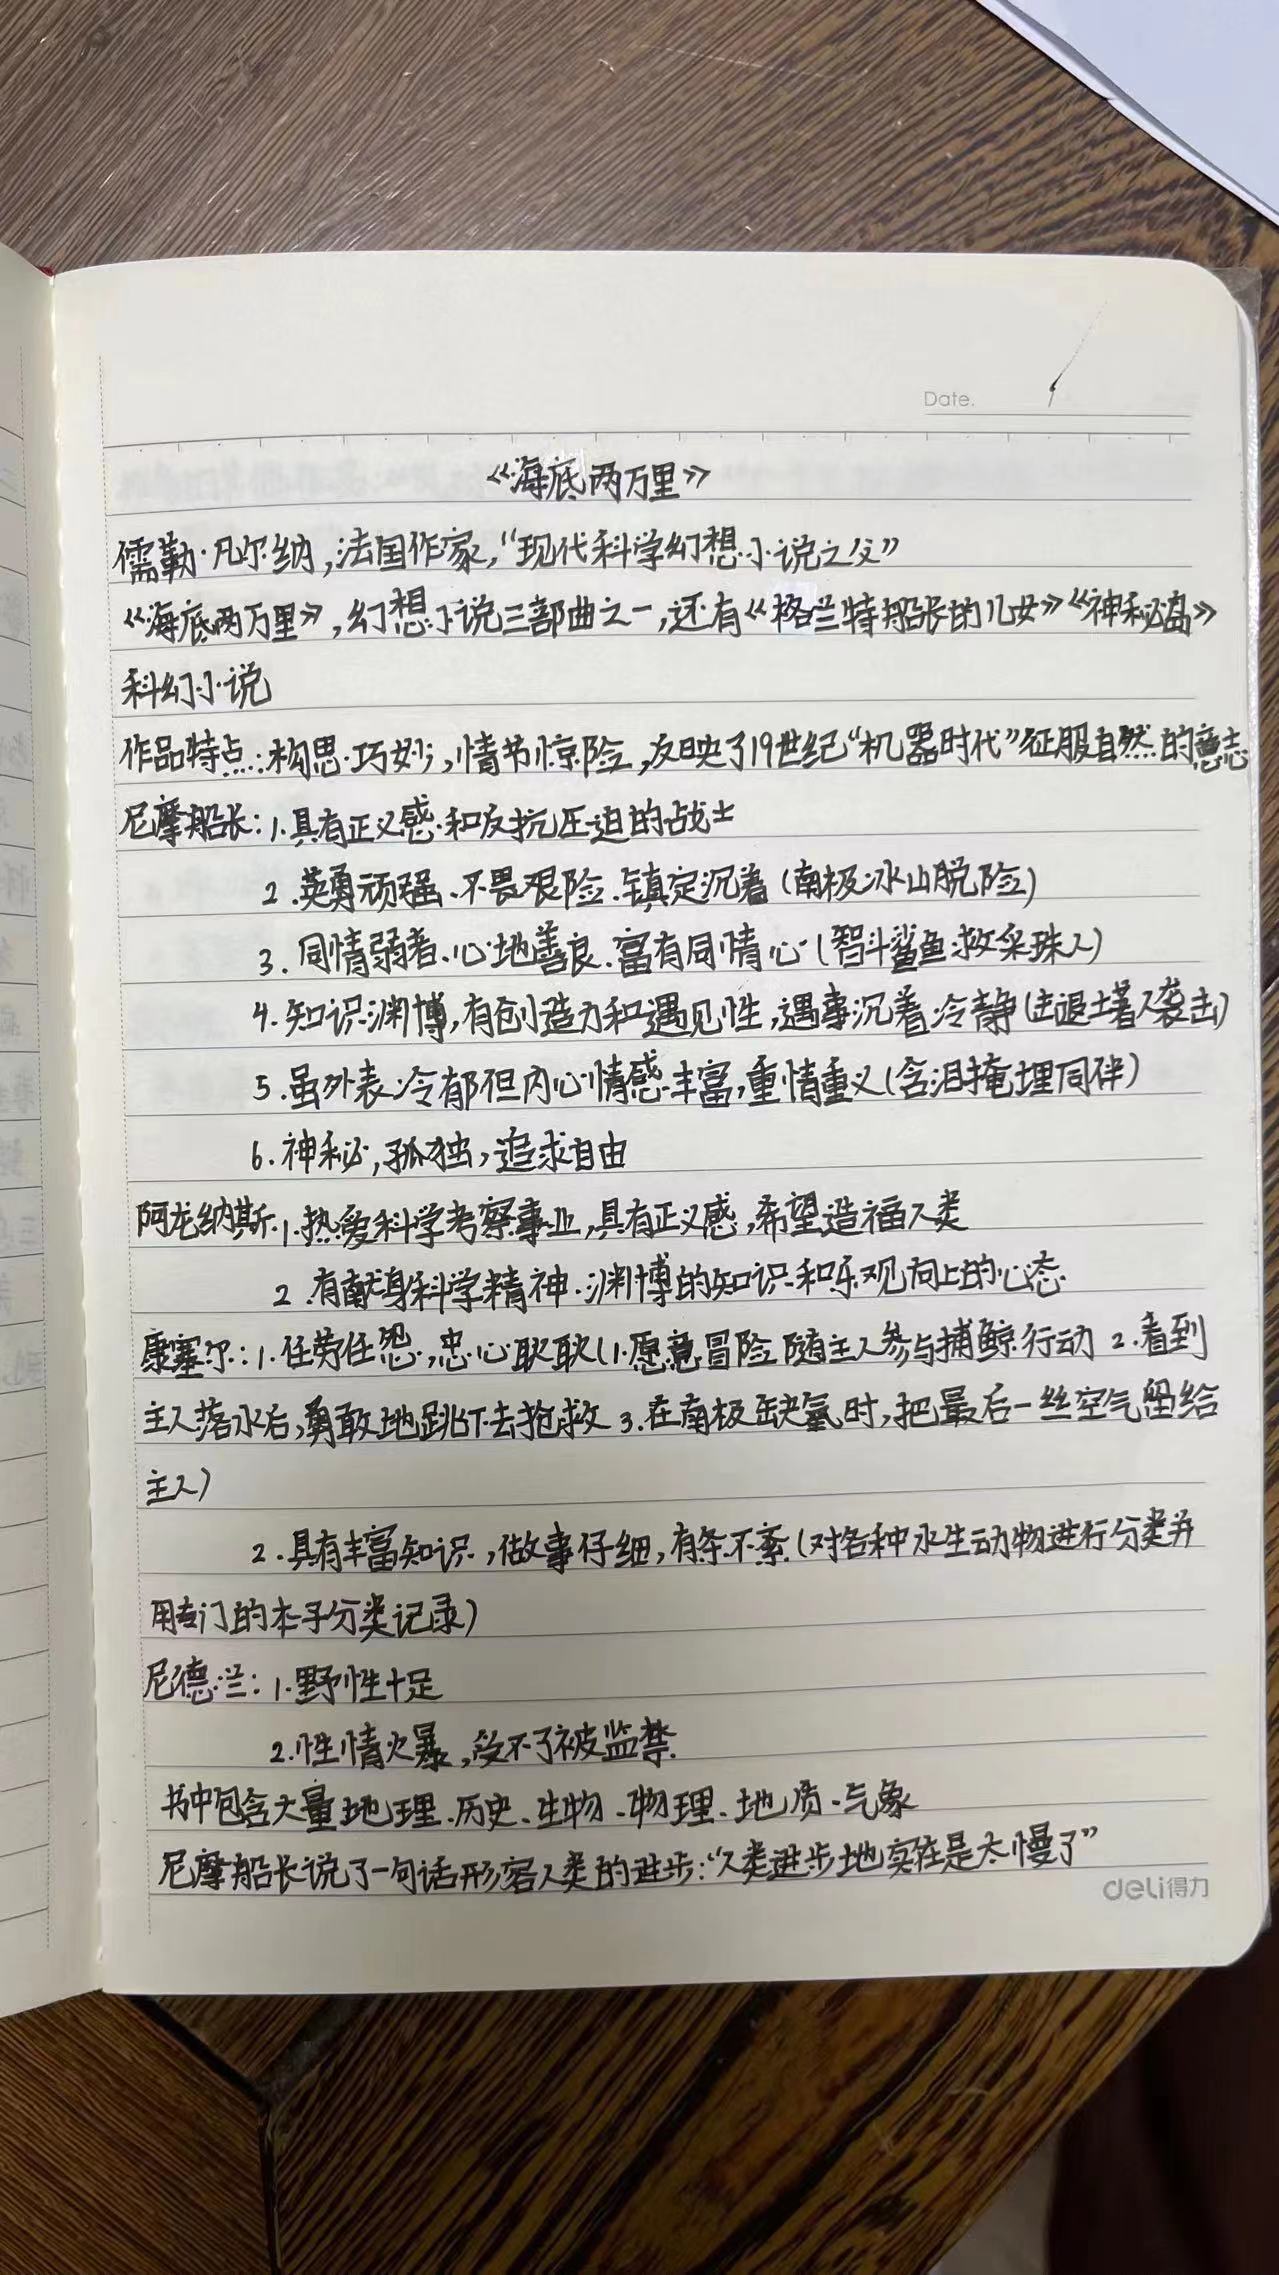 Date.
《海底两万里》
儒勒·凡尔纳,法国作家,“现代科学幻想小说之父”
《海底两万里》,幻想小说三部曲之一,还有《格兰特船长的儿女》《神秘岛》
科幻小说
作品特点:构思巧妙,情节惊险,反映了19世纪“机器时代”征服自然的意志
尼摩船长:1.具有正义感和反抗压迫的战士
2.英勇顽强、不畏艰险、镇定沉着(南极冰山脱险)
3.同情弱者、心地善良、富有同情心(智斗鲨鱼救采珠人)
4.知识渊博,有创造力和遇见性,遇事沉着冷静(击退土著人袭击)
5.虽外表冷郁但内心情感丰富,重情重义(含泪掩埋同伴)
6.神秘,孤独,追求自由
阿龙纳斯:1.热爱科学考察事业,具有正义感,希望造福人类
2.有献身科学精神、渊博的知识和乐观向上的心态
康塞尔:1.任劳任怨,忠心耿耿(1.愿意冒险随主人参与捕鲸行动 2.看到
主人落水后,勇敢地跳下去抢救 3.在南极缺氧时,把最后一丝空气留给
主人)
2.具有丰富知识,做事仔细,有条不紊(对各种水生动物进行分类并
用专门的本子分类记录)
尼德·兰:1.野性十足
2.性情火暴,受不了被监禁
书中包含大量地理、历史、生物、物理、地质、气象
尼摩船长说了一句话形容人类的进步:“人类进步地实在是太慢了”
deli得力